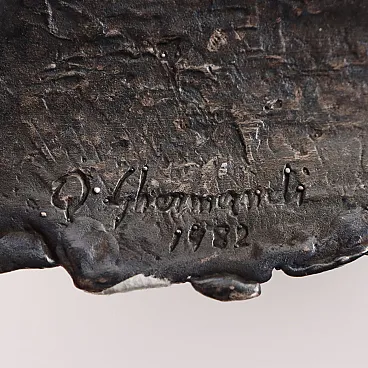 Q. Ghermandi
1982